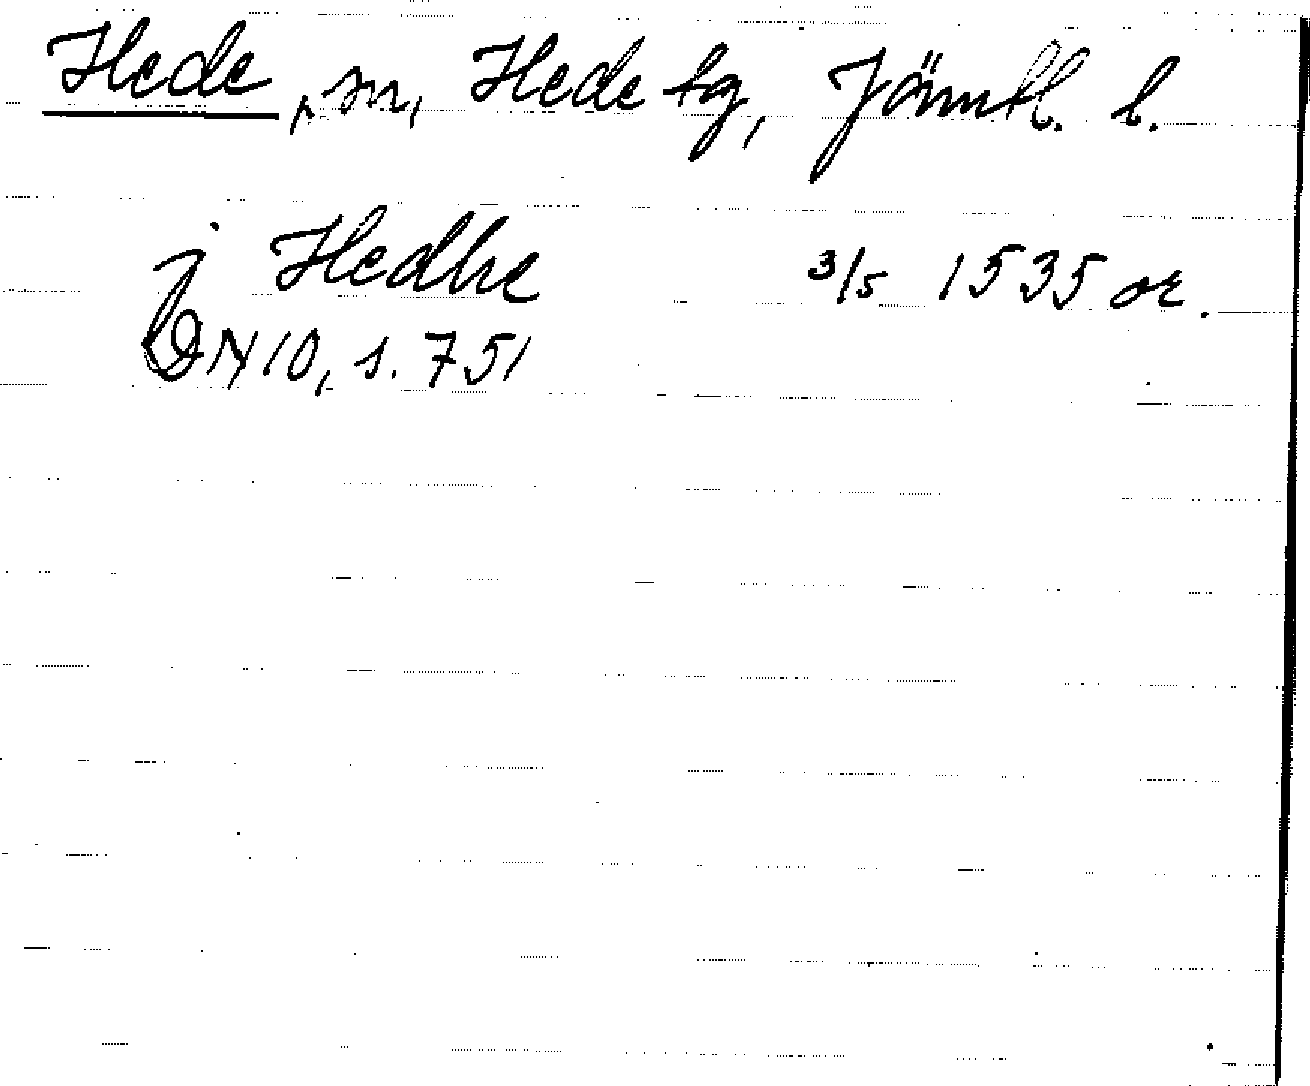 Hede, sn, Hede tg, Jämtl. l.
j Hedhe 3/5 1535 or.
DN 10, s. 751